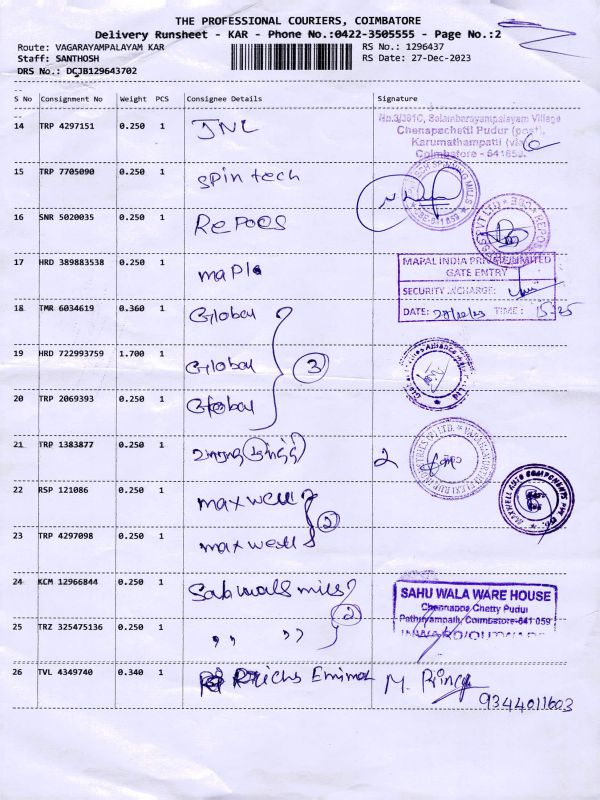 THE PROFESSIONAL COURIERS, COIMBATORE
Delivery Runsheet - KAR - Phone No.:0422-3505555 - Page No.:2
Route: VAGARAYAMPALAYAM KAR
RS No.: 1296437
Staff: SANTHOSH
RS Date: 27-Dec-2023
DRS No.: DCJB129643702
S No Consignment No Weight PCS Consignee Details Signature
14 TRP 4297151 0.250 1 JNL
No.3/391C, Selambarayampalayam Village
Chenapachetti Pudur (post),
Karumathampatti (via)
Coimbatore - 641659.
15 TRP 7705090 0.250 1 spin tech
SPINNING MILLS
16 SNR 5020035 0.250 1 Repoes
17 HRD 389883538 0.250 1 mapl
MAPAL INDIA PRIVATE LIMITED
GATE ENTRY
SECURITY INCHARGE:
DATE: TIME: 15:25
18 TMR 6034619 0.360 1 Global
19 HRD 722993759 1.700 1 Global 3
20 TRP 2069393 0.250 1 Global
21 TRP 1383877 0.250 1 2
22 RSP 121086 0.250 1 maxwell 2
MAXWELL AUTO COMPONENTS PVT LTD
23 TRP 4297098 0.250 1 maxwell
24 KCM 12966844 0.250 1 Sabwals mills 2
SAHU WALA WARE HOUSE
Chennappa Chetty Pudur
Pathuvampalli, Coimbatore-641 059
INWARD/OUTWARD
25 TRZ 325475136 0.250 1 ,, ,,
26 TVL 4349740 0.340 1 M. Prince
9344011603